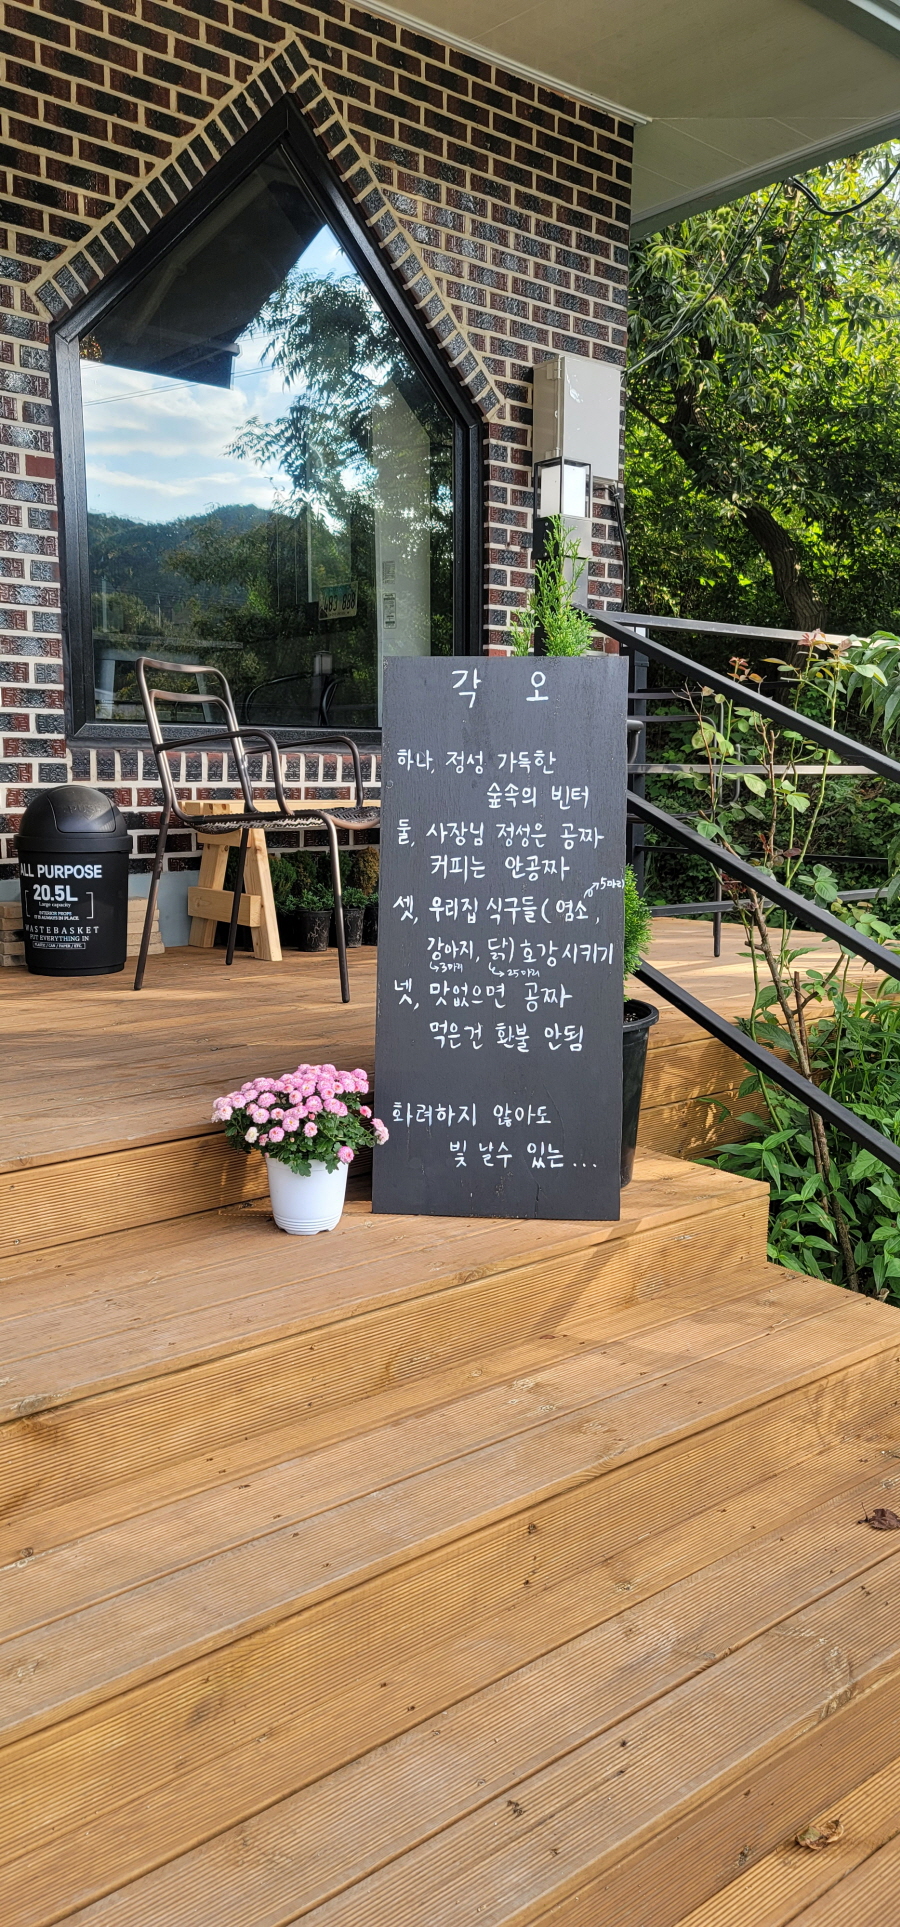 각 오
하나, 정성 가득한
숲속의 빈터
둘, 사장님 정성은 공짜
커피는 안공짜
셋, 우리집 식구들( 염소,
강아지, 닭) 호강시키기
↳3마리 ↳25마리
넷, 맛없으면 공짜
먹은건 환불 안됨
화려하지 않아도
빛 날수 있는...
ALL PURPOSE
20.5L
Large capacity
INTERIOR PROPS
IT IS ALWAYS IN PLACE
WASTEBASKET
PUT EVERYTHING IN
PLASTIC / CAN / PAPER / ETC